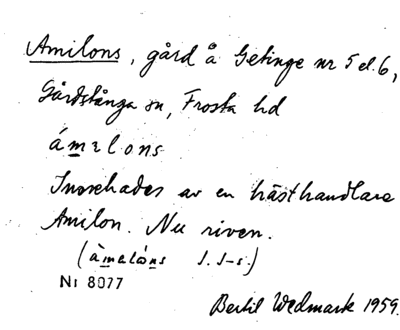 Amilons, gård å Getinge nr 5 el. 6,
Gårdstånga sn, Frosta hd
ámelons
Innehades av en hästhandlare
Amilon. Nu riven.
(àmelóns J. J-s.)
Nr 8077
Bertil Wedmark 1959.